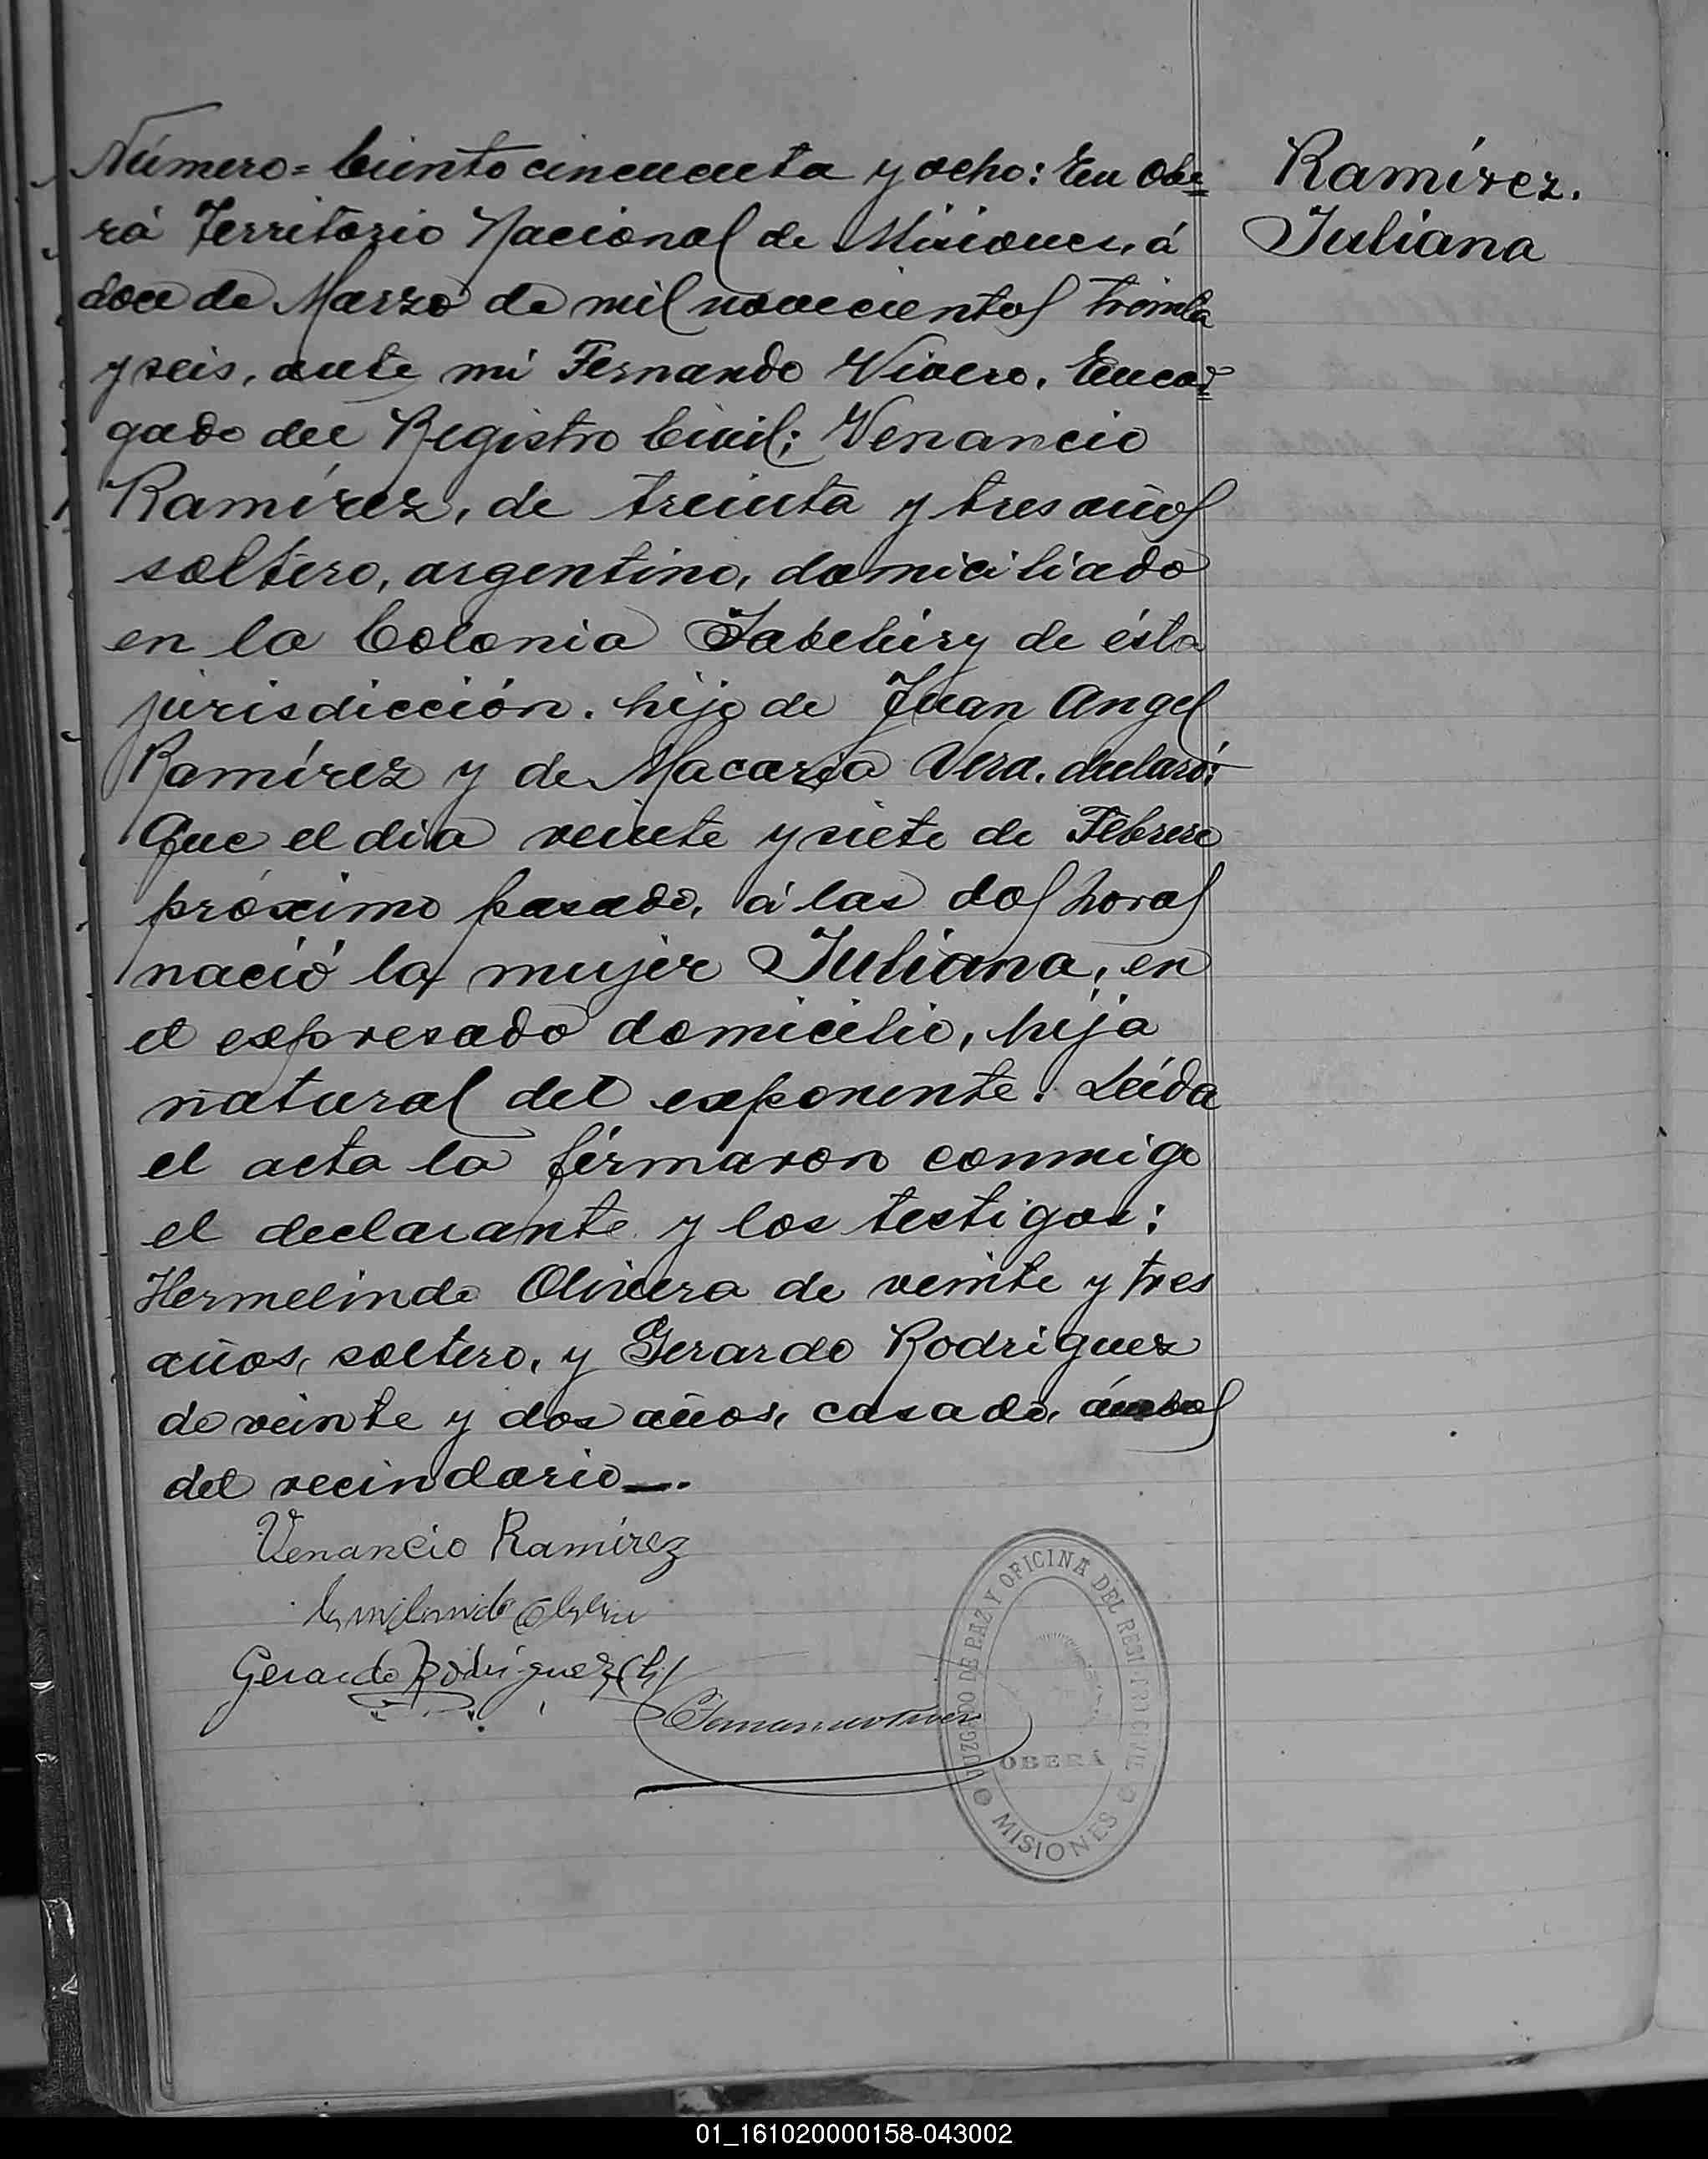 Número= Ciento cincuenta y ocho: En Obe=
rá Territorio Nacional de Misiones, á
doce de Marzo de mil novecientos treinta
y seis, ante mi Fernando Vivero, Encar=
gado del Registro Civil; Venancio
Ramírez, de treinta y tres años
soltero, argentino, domiciliado
en la Colonia Yabebiry de ésta
jurisdicción. hijo de Juan Angel
Ramírez y de Macaria Vera, declaró:
Que el dia veinte y siete de Febrero
próximo pasado, á las dos horas
nació la mujer Juliana, en
el expresado domicilio, hija
natural del exponente. Leída
el acta la firmaron conmigo
el declarante y los testigos:
Hermelindo Olivera de veinte y tres
años, soltero, y Gerardo Rodriguez
de veinte y dos años, casado, ámbos
del vecindario—.
Ramírez.
Juliana
Venancio Ramírez
Gerardo Rodriguez (h)
JUZGADO DE PAZ Y OFICINA DEL REGISTRO CIVIL
OBERÁ
MISIONES
01_161020000158-043002